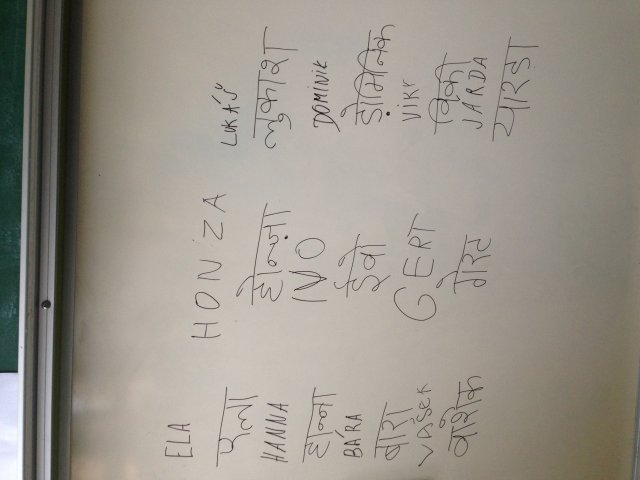 ELA
एला
HANNA
हान्ना
BÁRA
बारा
VAŠEK
वाशेक
HONZA
होन्ज़ा
IVO
ईवो
GERT
गेर्ट
LUKÁŠ
लुकाश
DOMINIK
डोमिनिक
VIKI
JARDA
यारडा